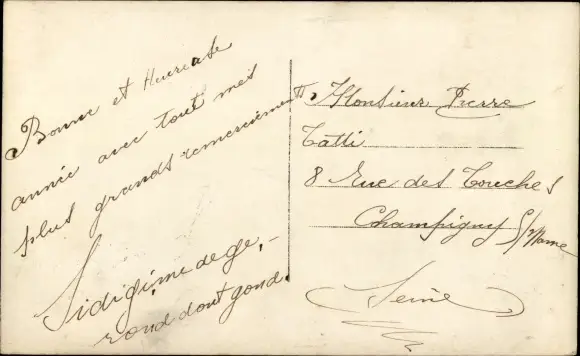 Bonne et Heureuse
année avec tout mes
plus grands remerciements
Sidigime de ge,-
rond dont gond.
Monsieur Pierre
Tatti
8 Rue des Touches
Champigny S/Marne
Seine